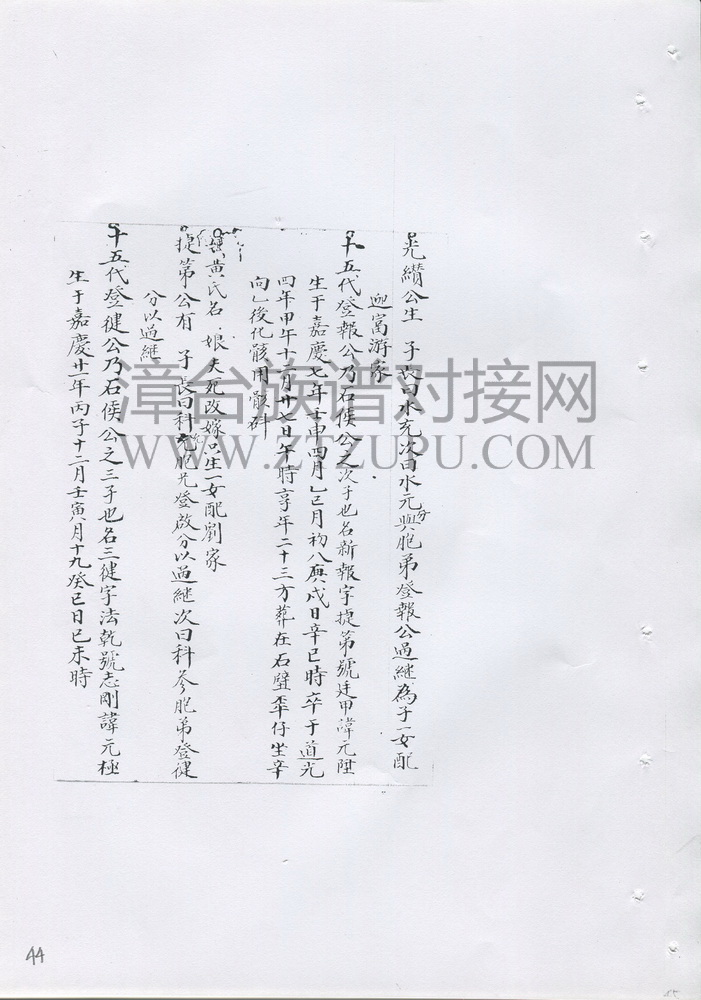 光纘公生 子長曰水充次曰水元分與胞弟登報公過継為子一女配
迎富游家
十五代登報公乃石侯公之次子也名新報字捷第號廷甲諱元陞
生于嘉慶七年壬申四月乙巳月初八庚戌日辛巳時卒于道光
四年甲午十一月廿七日午時享年二十三方葬在石壁 仔坐辛
向乙後化骸用骸
黄氏名 娘夫死改嫁只生一女配劉家
捷第公有 子長曰科 胞兄登啟分以過継次曰科参胞弟登健
分以過継
十五代登健公乃石侯公之三子也名三健字法乾號志剛諱元極
生于嘉慶廿一年丙子十二月壬寅月十九癸巳日巳未時
漳台族谱对接网
WWW.ZTZUPU.COM
44